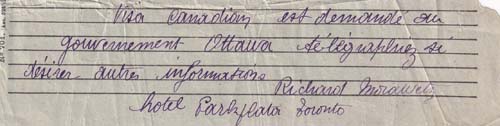 Visa Canadian est demandé au
gouvernement Ottawa télégraphiez si
désirez autres informations
Richard Morawetz
hotel Parkplaza Toronto